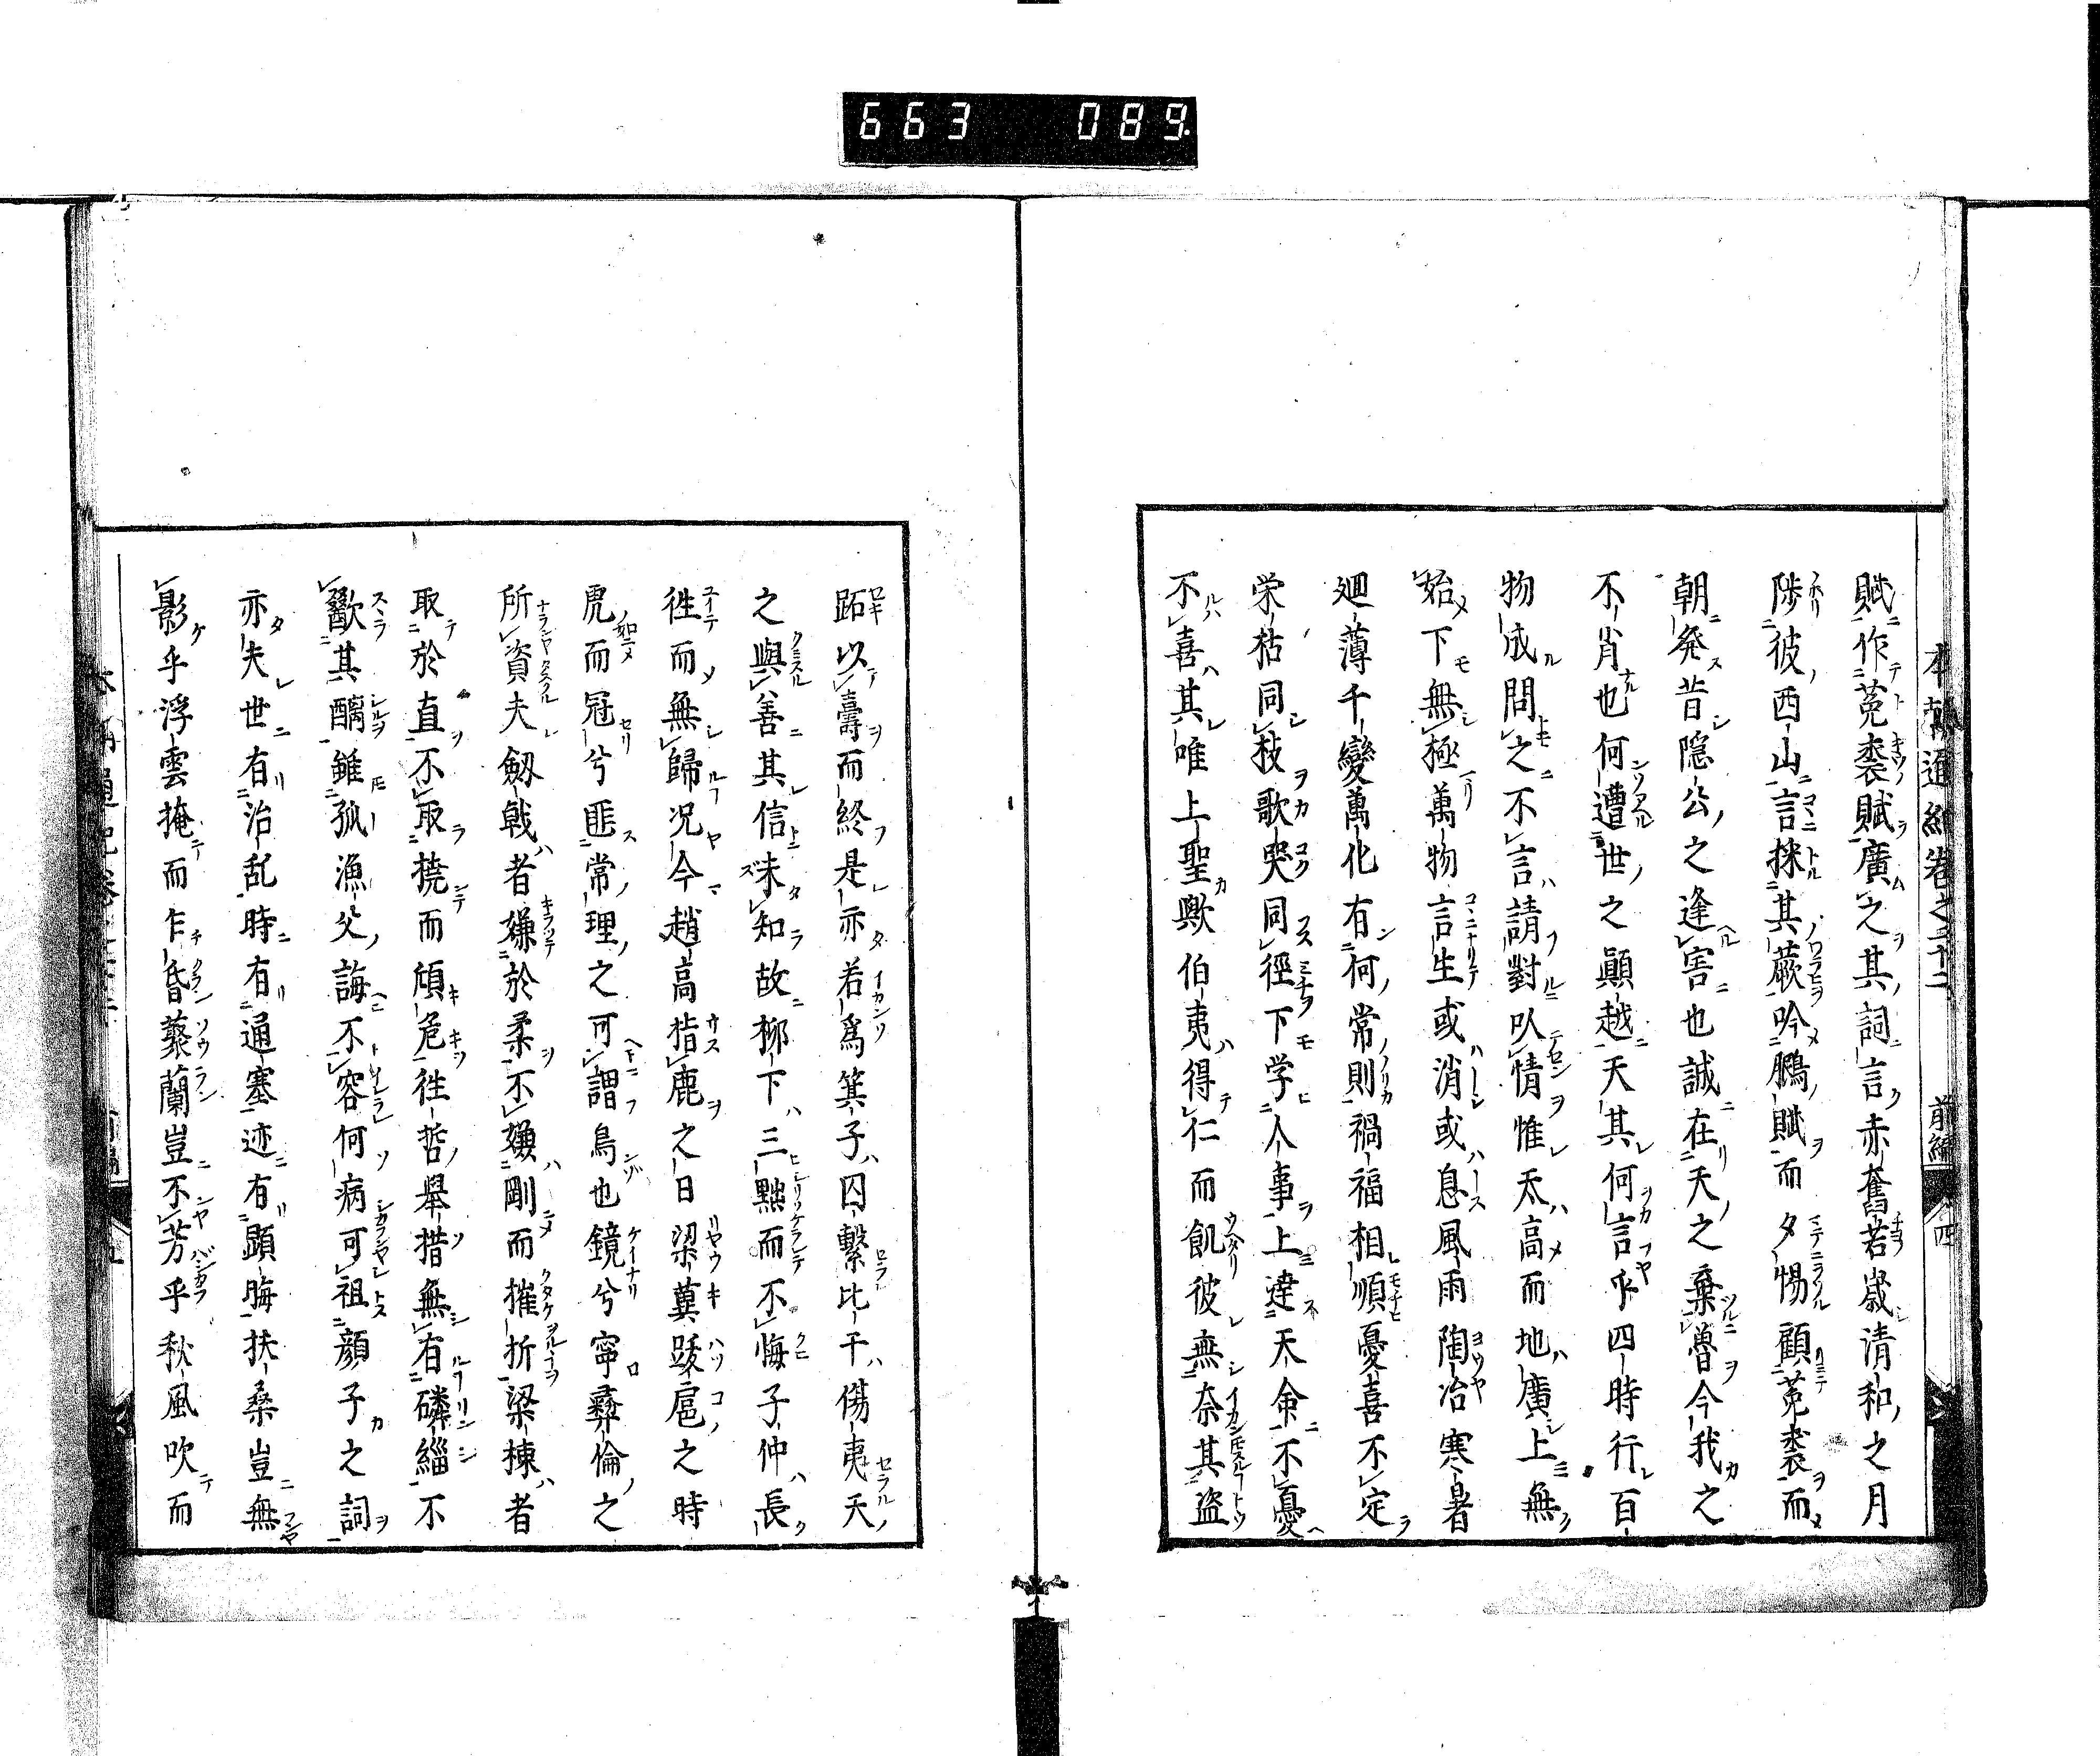 663 089
本朝通紀巻之二十二 前編 四
賦作菟裘賦廣之其詞言赤奮若歳清和之月
陟彼西山言採其蕨吟鵬賦而夕惕顧菟裘而
朝発昔隠公之逢害也誠在天之棄魯今我之
不肖也何遭世之顚越天其何言乎四時行百
物成問之不言請對以情惟天高而地廣上無
始下無極萬物言生或消或息風雨陶冶寒暑
廻薄千變萬化有何常則禍福相順憂喜不定
栄枯同枝歌哭同徑下学人事上達天命不憂
不喜其唯上聖歟伯夷得仁而飢彼無奈其盗
跖以壽而終是亦若爲箕子囚繫比干傷夷天
之與善其信未知故柳下三黜而不悔子仲長
徃而無歸况今趙高指鹿之日梁冀跋扈之時
虎而冠兮匪常理之可謂鳥也鏡兮寧彝倫之
所資夫劔戟者嫌於柔不嫌剛而摧折梁棟者
取於直不取撓而頎危徃哲舉措無有磷緇不
歠其醨雖孤漁父誨不容何病可祖顔子之詞
亦夫世有治乱時有通塞迹有顕晦扶桑豈無
影乎浮雲掩而乍昏藂蘭豈不芳乎秋風吹而